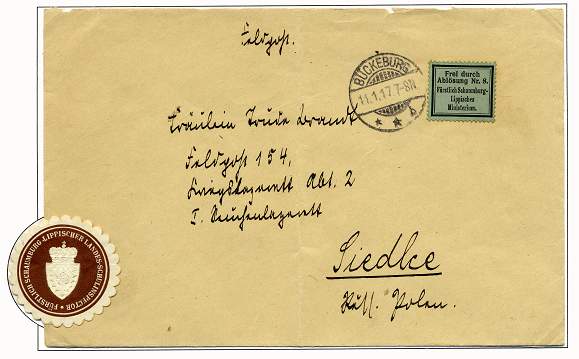 Feldpost.
BÜCKEBURG
11.1.17.7-8N
Frei durch
Ablösung Nr. 8.
Fürstlich Schaumburg-
Lippisches
Ministerium.
Fräulein Trude Brandt
Feldpost 154,
Kriegslazarett Abt. 2
I. Seuchenlazarett
Siedlce
Russ. Polen.
FÜRSTLICH SCHAUMBURG-LIPPISCHER LANDES-SCHULINSPECTOR